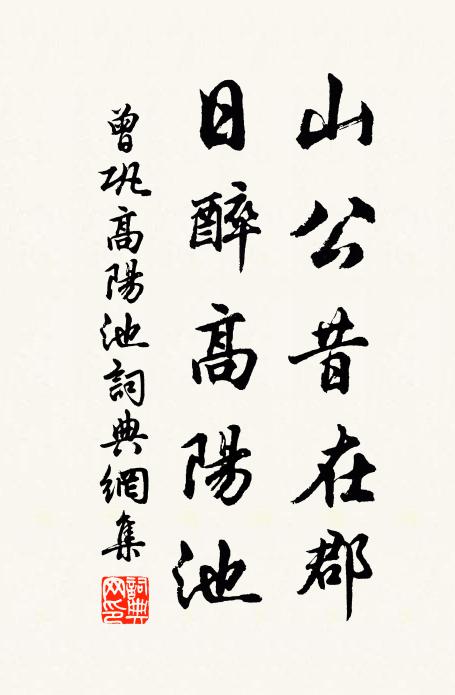 山公昔在郡
日醉高陽池
曾巩高陽池詞典網集
詞典網印